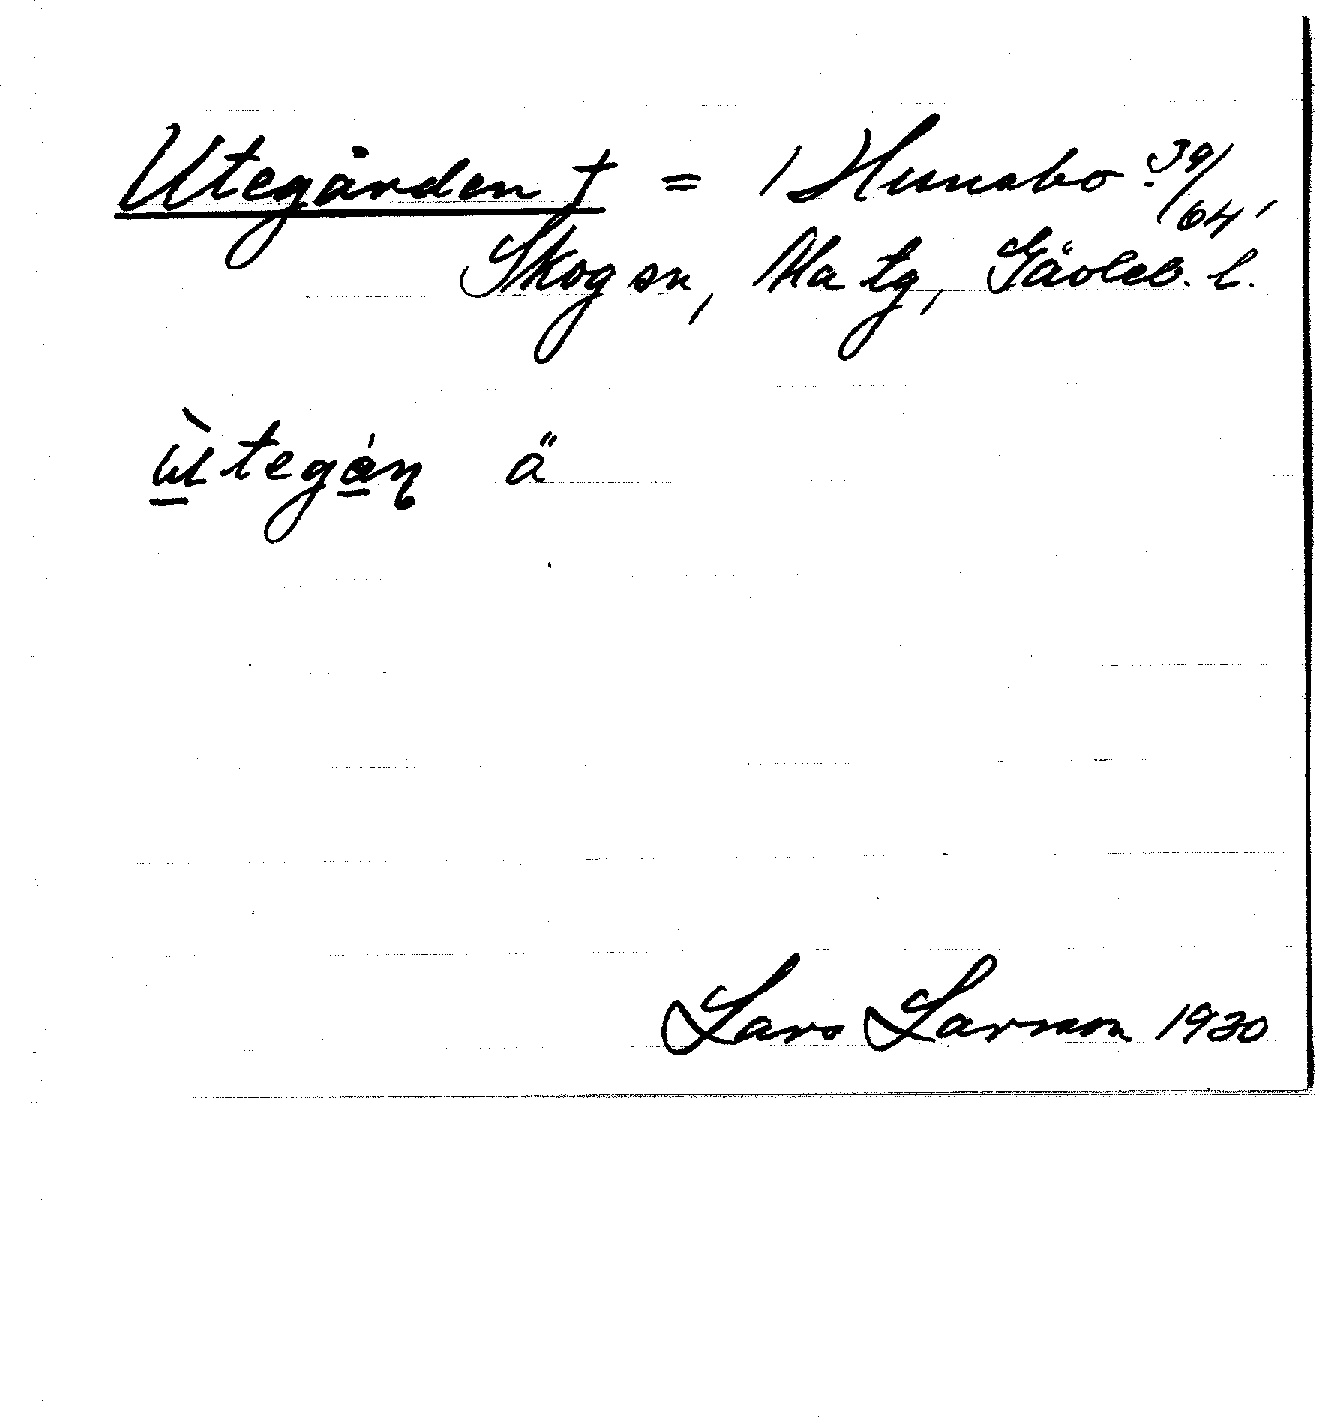 Utegården † = 1 Hunsbo 39/64,
Skog sn, Ala tg, Gävleb. l.
ùtegán ä
Lars Larsson 1930